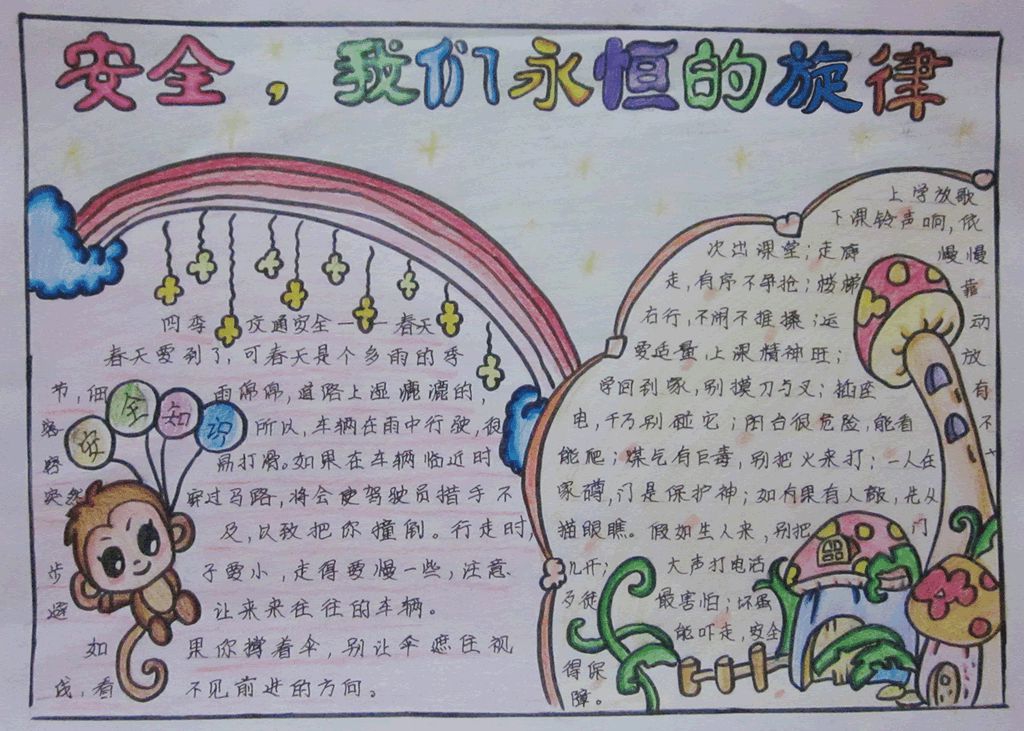 安全，我们永恒的旋律
四季 交通安全——春天
春天要到了，可春天是个多雨的季
节，细 雨绵绵，道路上湿漉漉的，
所以，车辆在雨中行驶，很
容 易打滑。如果在车辆临近时
突然 穿过马路，将会使驾驶员措手不
及，以致把你撞倒。行走时，
步 子要小，走得要慢一些，注意
避 让来来往往的车辆。
如 果你撑着伞，别让伞遮住视
线，看 不见前进的方向。
安全知识
上学放歌
下课铃声响，依
次出课堂；走廊 慢慢
走，有序不争抢；楼梯 靠
右行，不闹不推搡；运 动
要适量，上课精神旺； 放
学回到家，别摸刀与叉；插座 有
电，千万别碰它；阳台很危险，能看 不
能爬；煤气有巨毒，别把火来打；一人在
家蹲，门是保护神；如有果有人敲，先从
猫眼瞧。假如生人来，别把 门
儿开； 大声打电话
歹徒 最害怕；坏蛋
能吓走，安全
得保
障。